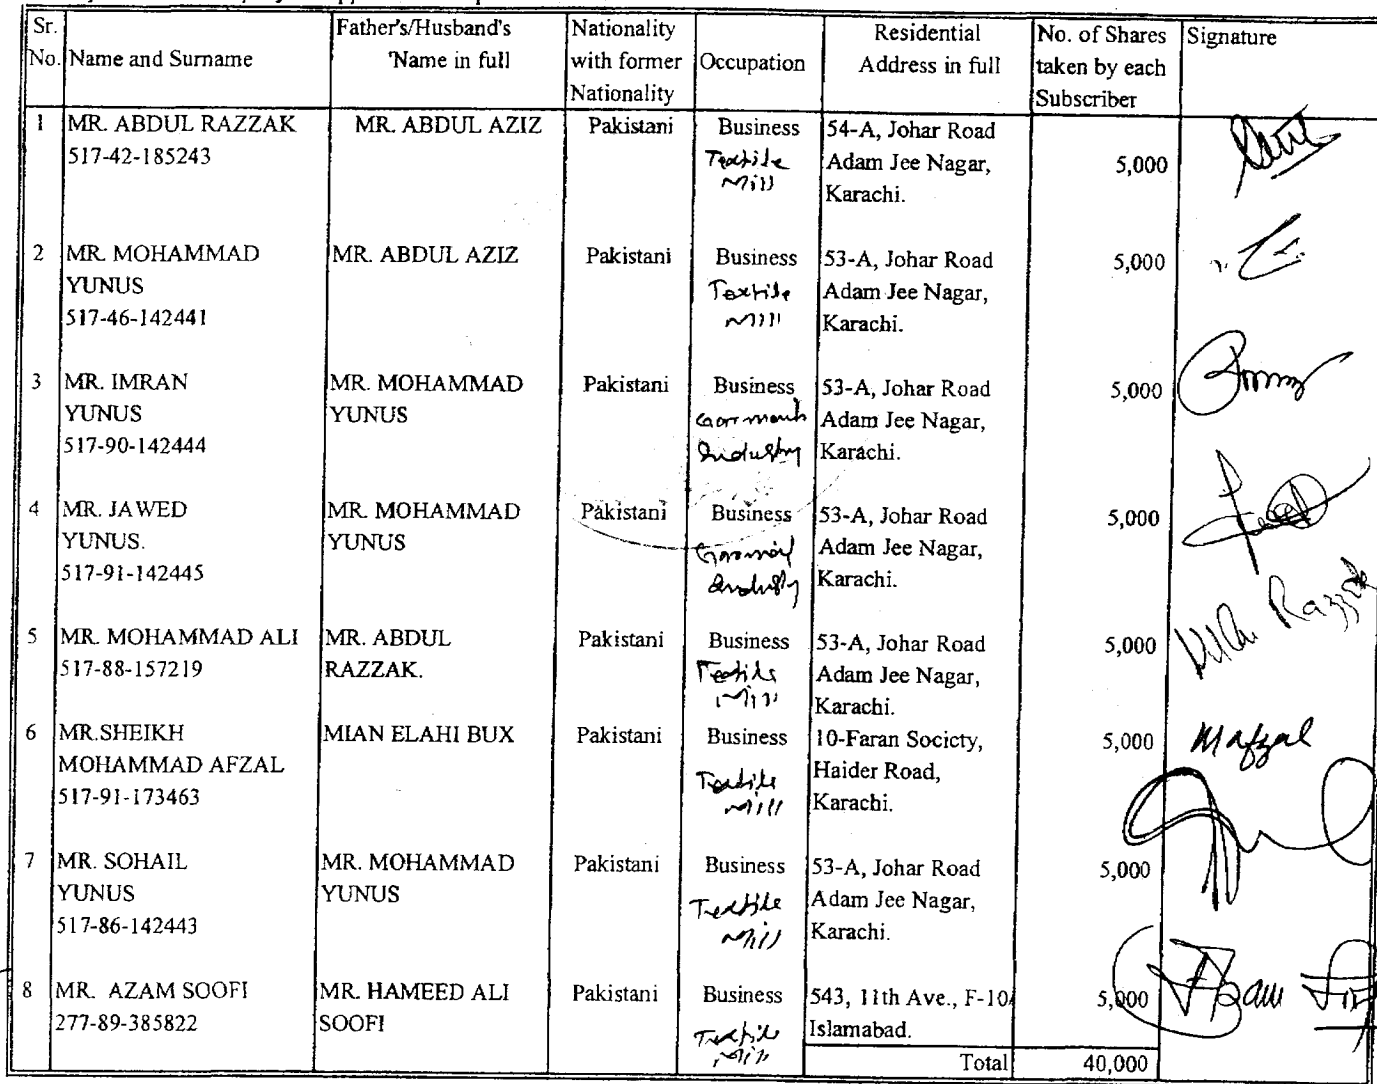 Sr.
No. Name and Surname
Father's/Husband's
Name in full
Nationality
with former
Nationality
Occupation
Residential
Address in full
No. of Shares
taken by each
Subscriber
Signature
1 MR. ABDUL RAZZAK
517-42-185243
MR. ABDUL AZIZ
Pakistani
Business
Textile
Mill
54-A, Johar Road
Adam Jee Nagar,
Karachi.
5,000
2 MR. MOHAMMAD
YUNUS
517-46-142441
MR. ABDUL AZIZ
Pakistani
Business
Textile
Mill
53-A, Johar Road
Adam Jee Nagar,
Karachi.
5,000
3 MR. IMRAN
YUNUS
517-90-142444
MR. MOHAMMAD
YUNUS
Pakistani
Business
Garments
Industry
53-A, Johar Road
Adam Jee Nagar,
Karachi.
5,000
4 MR. JAWED
YUNUS.
517-91-142445
MR. MOHAMMAD
YUNUS
Pakistani
Business
Industry
53-A, Johar Road
Adam Jee Nagar,
Karachi.
5,000
5 MR. MOHAMMAD ALI
517-88-157219
MR. ABDUL
RAZZAK.
Pakistani
Business
Textile
Mill
53-A, Johar Road
Adam Jee Nagar,
Karachi.
5,000
Razzak
6 MR.SHEIKH
MOHAMMAD AFZAL
517-91-173463
MIAN ELAHI BUX
Pakistani
Business
Textile
Mill
10-Faran Society,
Haider Road,
Karachi.
5,000
Mafzal
7 MR. SOHAIL
YUNUS
517-86-142443
MR. MOHAMMAD
YUNUS
Pakistani
Business
Textile
Mill
53-A, Johar Road
Adam Jee Nagar,
Karachi.
5,000
8 MR. AZAM SOOFI
277-89-385822
MR. HAMEED ALI
SOOFI
Pakistani
Business
Textile
Mill
543, 11th Ave., F-10/
Islamabad.
5,000
Azam
Total 40,000